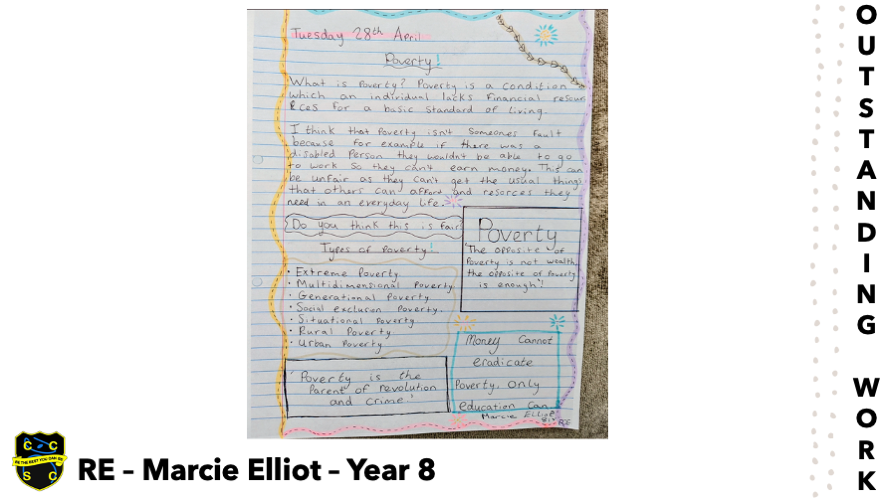 Tuesday 28th April
Poverty!
What is Poverty? Poverty is a condition
which an individual lacks Financial resou
Rces for a basic standard of living.
I think that Poverty isn't Someones fault
because for example if there was a
disabled Person they wouldn't be able to go
to work So they can't earn money. This can
be unfair as they can't get the usual things
that others can afford and resorces they
need in an everyday life.
Do you think this is fair
Types of Poverty!
• Extreme Poverty
• Multidimensional Poverty
• Generational Poverty
• Social exclusion Poverty.
• Situational Poverty
• Rural Poverty
• Urban Poverty
Poverty
"The opposite of
Poverty is not wealth
the opposite of Poverty
is enough"!
'Poverty is the
Parent of revolution
and crime.'
Money Cannot
eradicate
Poverty. Only
education Can
Marcie Elliot
RE
C C
BE THE BEST YOU CAN BE
S C
RE – Marcie Elliot – Year 8
OUTSTANDING WORK